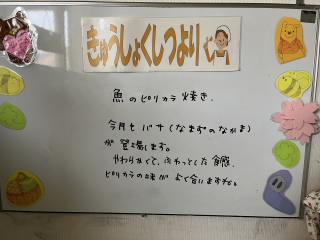 きゅうしょくしつより
魚のピリカラ焼き.
今月も バサ(なまずのなかま)
が 登場します。
やわらかくて、ふわっとした 食感、
ピリカラの味が よく合いますね。